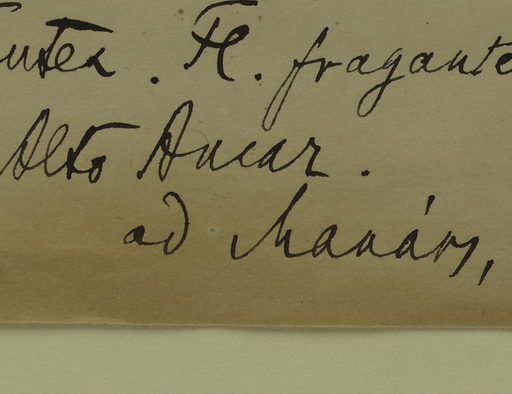 . Fl. fragante
Alto Aucar.
ad Manáos,